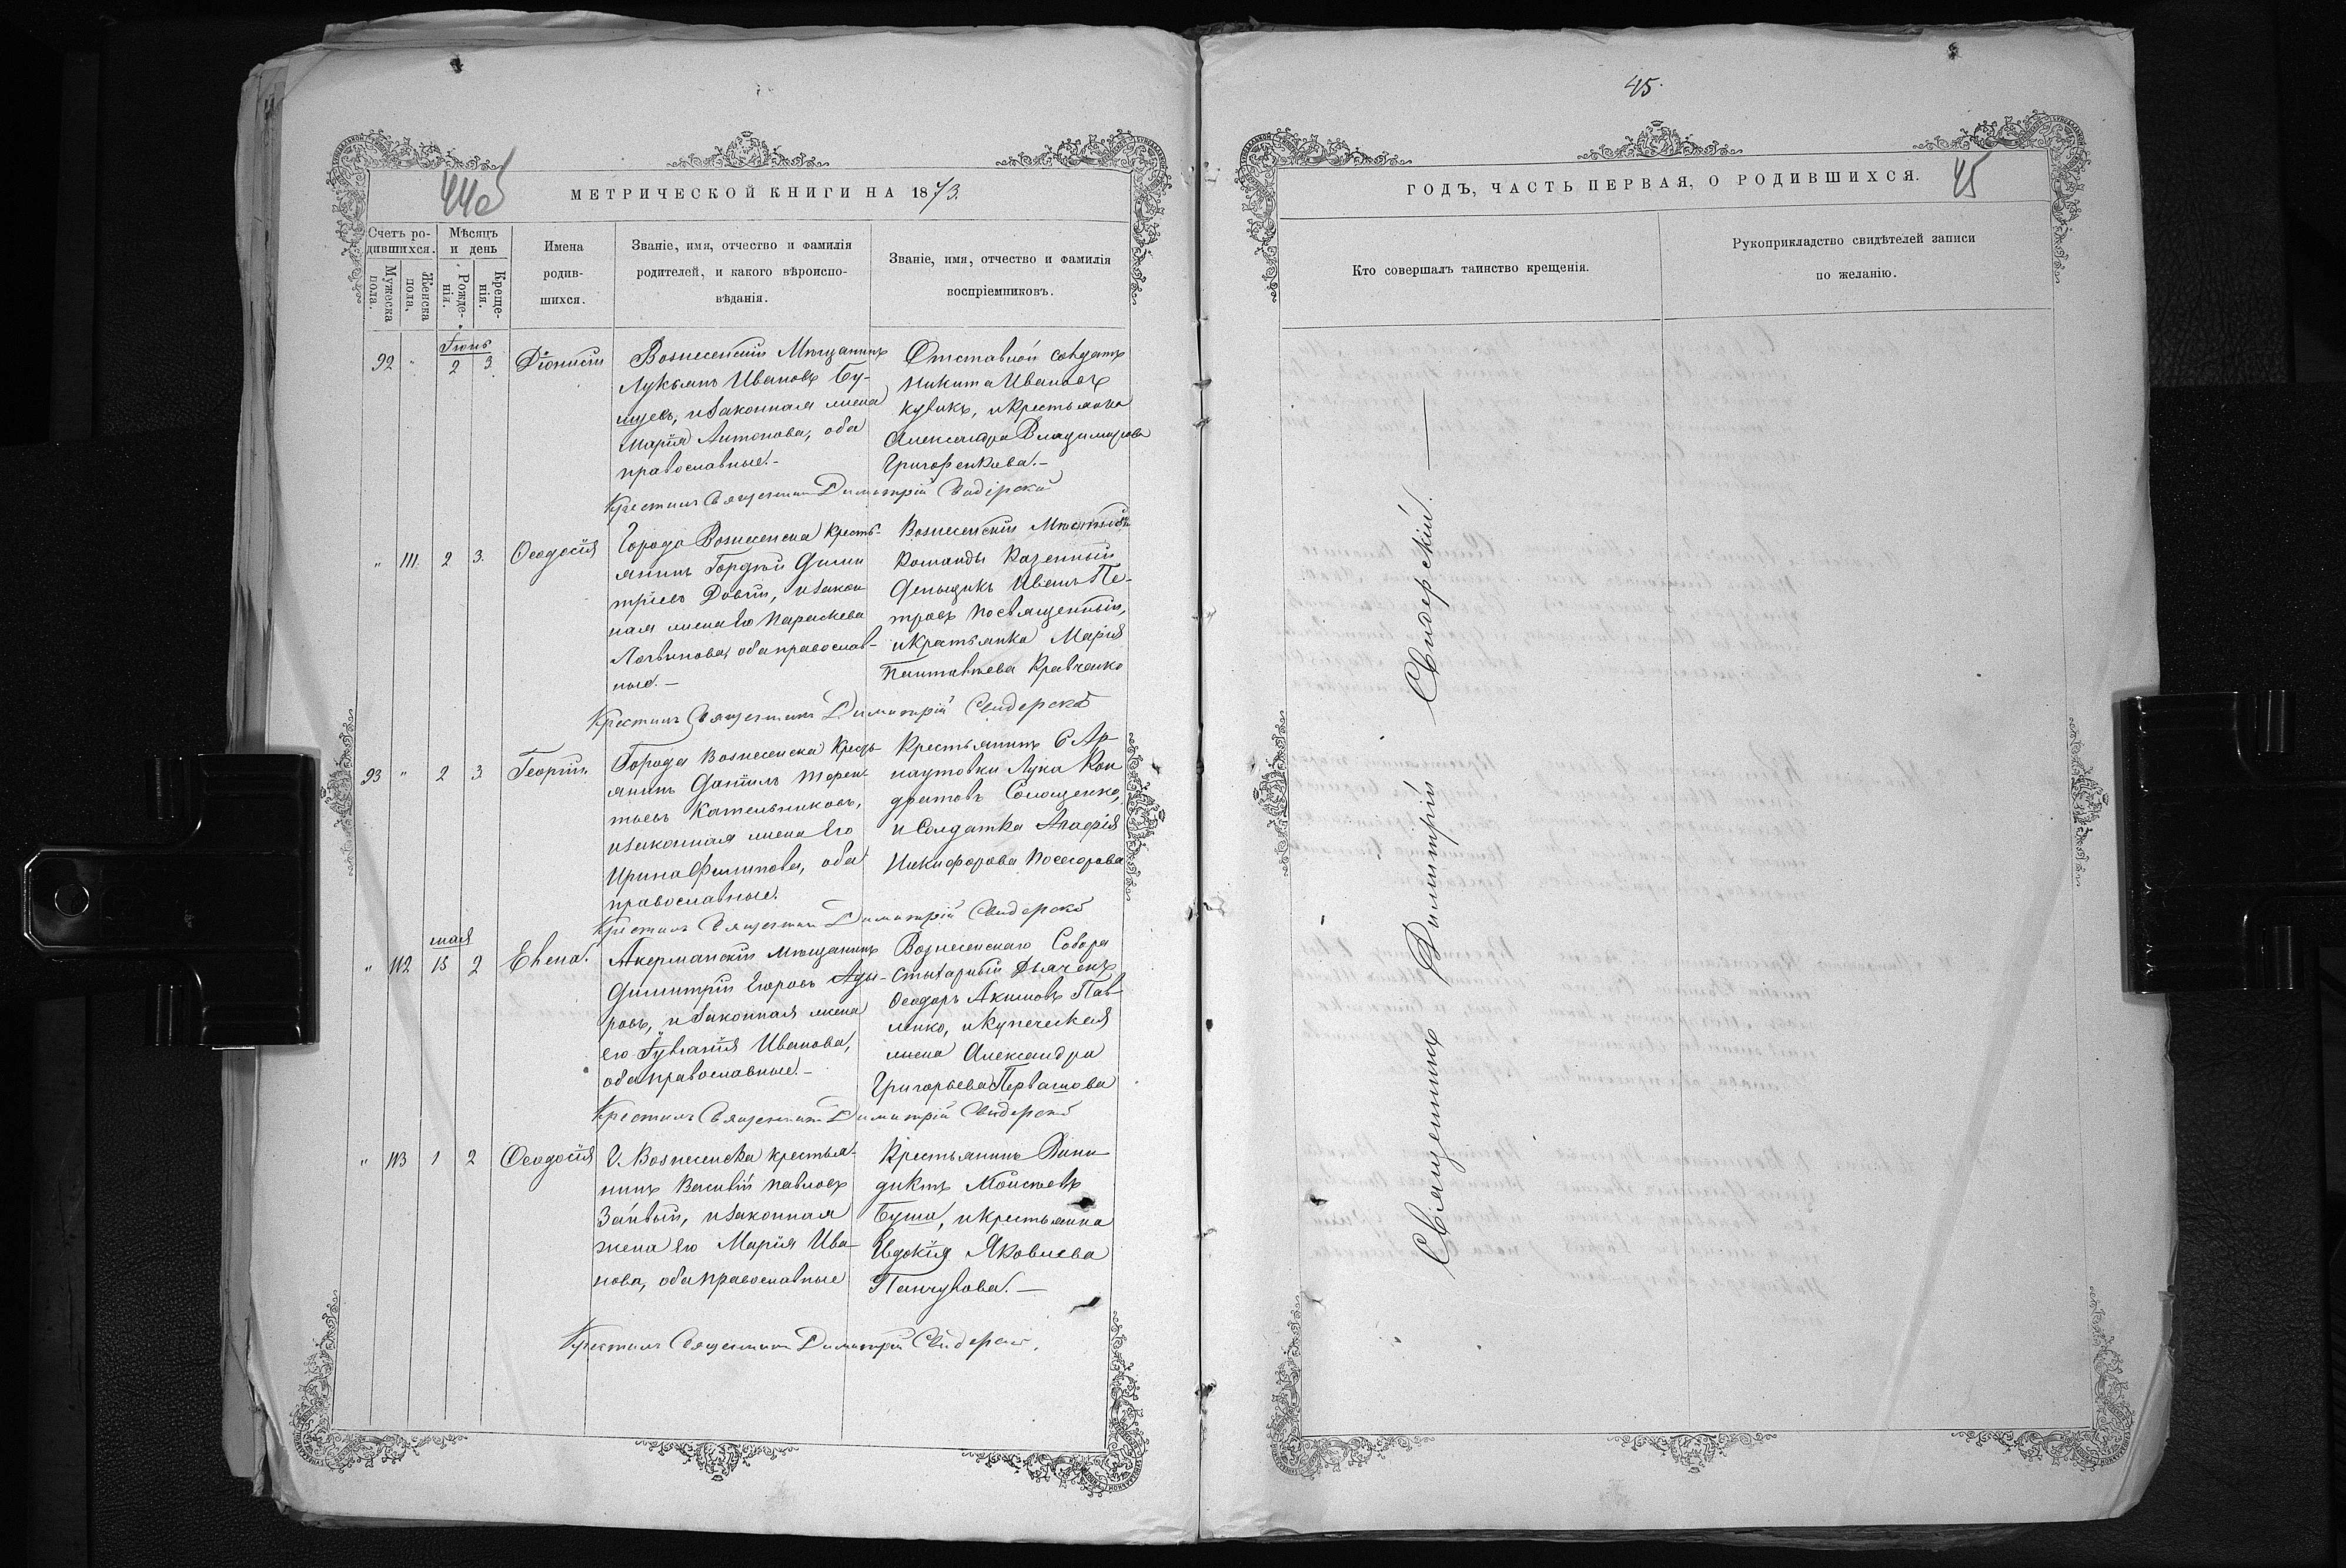 44об
МЕТРИЧЕСКОЙ КНИГИ НА 1873.
Счетъ ро-
дившихся.
Мужеска пола.
Женска пола.
Мѣсяцъ
и день
Рожде-
нія.
Креще-
нія.
Имена
родив-
шихся.
Званіе, имя, отчество и фамилія
родителей, и какого вѣроиспо-
вѣданія.
Званіе, имя, отчество и фамилія
воспріемниковъ.
Іюнь
92 " 2 3 Діонисій
Вознесенскій Мѣщанинъ
Лукьянъ Ивановъ Бу-
и законная жена
Марія Антонова, оба
православные.-
Отставной солдатъ
Никита Ивановъ
и крестьянка
Александра Владимирова
Григоренкова.-
Крестилъ Священникъ Димитрій Свидерскій
" 111. 2 3. Ѳеодосія
Города Вознесенска кресть-
янинъ Гордѣй Дими
тріевъ и закон
ная жена его Параскева
Логвинова, оба православ-
ные.-
Вознесенскій Мѣстной
Команды Казенный
Деньщикъ Иванъ Пе-
тровъ Посвященный,
и Крестьянка Марія
Кравченко
Крестилъ Священникъ Димитрій Свидерскій
93 " 2 3 Георгій.
Города Вознесенска Кресть
янинъ Даніилъ Терен
тьевъ Котельниковъ,
и законная жена его
Ирина Филипова, оба
православные.
Крестьянинъ С Ар-
наутовки Лука Кон
дратовъ Солощенко,
и Солдатка Агафія
Никифорова
Крестилъ Священникъ Димитрій Свидерскій
мая
" 112 15 2 Елена.
Акерманскій Мѣщанинъ
Димитрій Егоровъ Ады-
ровъ, и законная жена
его Іуліанія Иванова,
оба православные.-
Вознесенскаго Собора
Стихарный Дьячекъ
Ѳеодоръ Акимовъ Пав-
ленко, и купеческая
жена Александра
Григорьева Первашова
Крестилъ Священникъ Димитрій Свидерскій
" 113 1 2 Ѳеодосія
Г. Вознесенска крестья-
нинъ Василій Павловъ
и законная
жена его Марія Ива-
нова, оба православные
Крестьянинъ Вени
диктъ Моисеевъ
Буша, и крестьянка
Евдокія Яковлева
Панчукова.-
Крестилъ Священникъ Димитрій Свидерскій.
45.
45
ГОДЪ, ЧАСТЬ ПЕРВАЯ, О РОДИВШИХСЯ.
Кто совершалъ таинство крещенія.
Рукоприкладство свидѣтелей записи
по желанію.
Священникъ Димитрій Свидерскій.